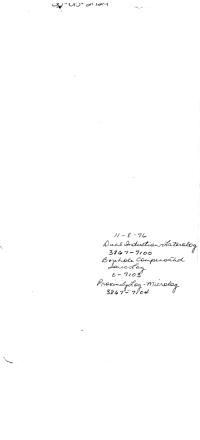 11-8-76
Dual Induction-Laterolog
3867-7100
Borehole Compensated
Sonic Log
0-7103
Proximity Log-Microlog
3867-7104